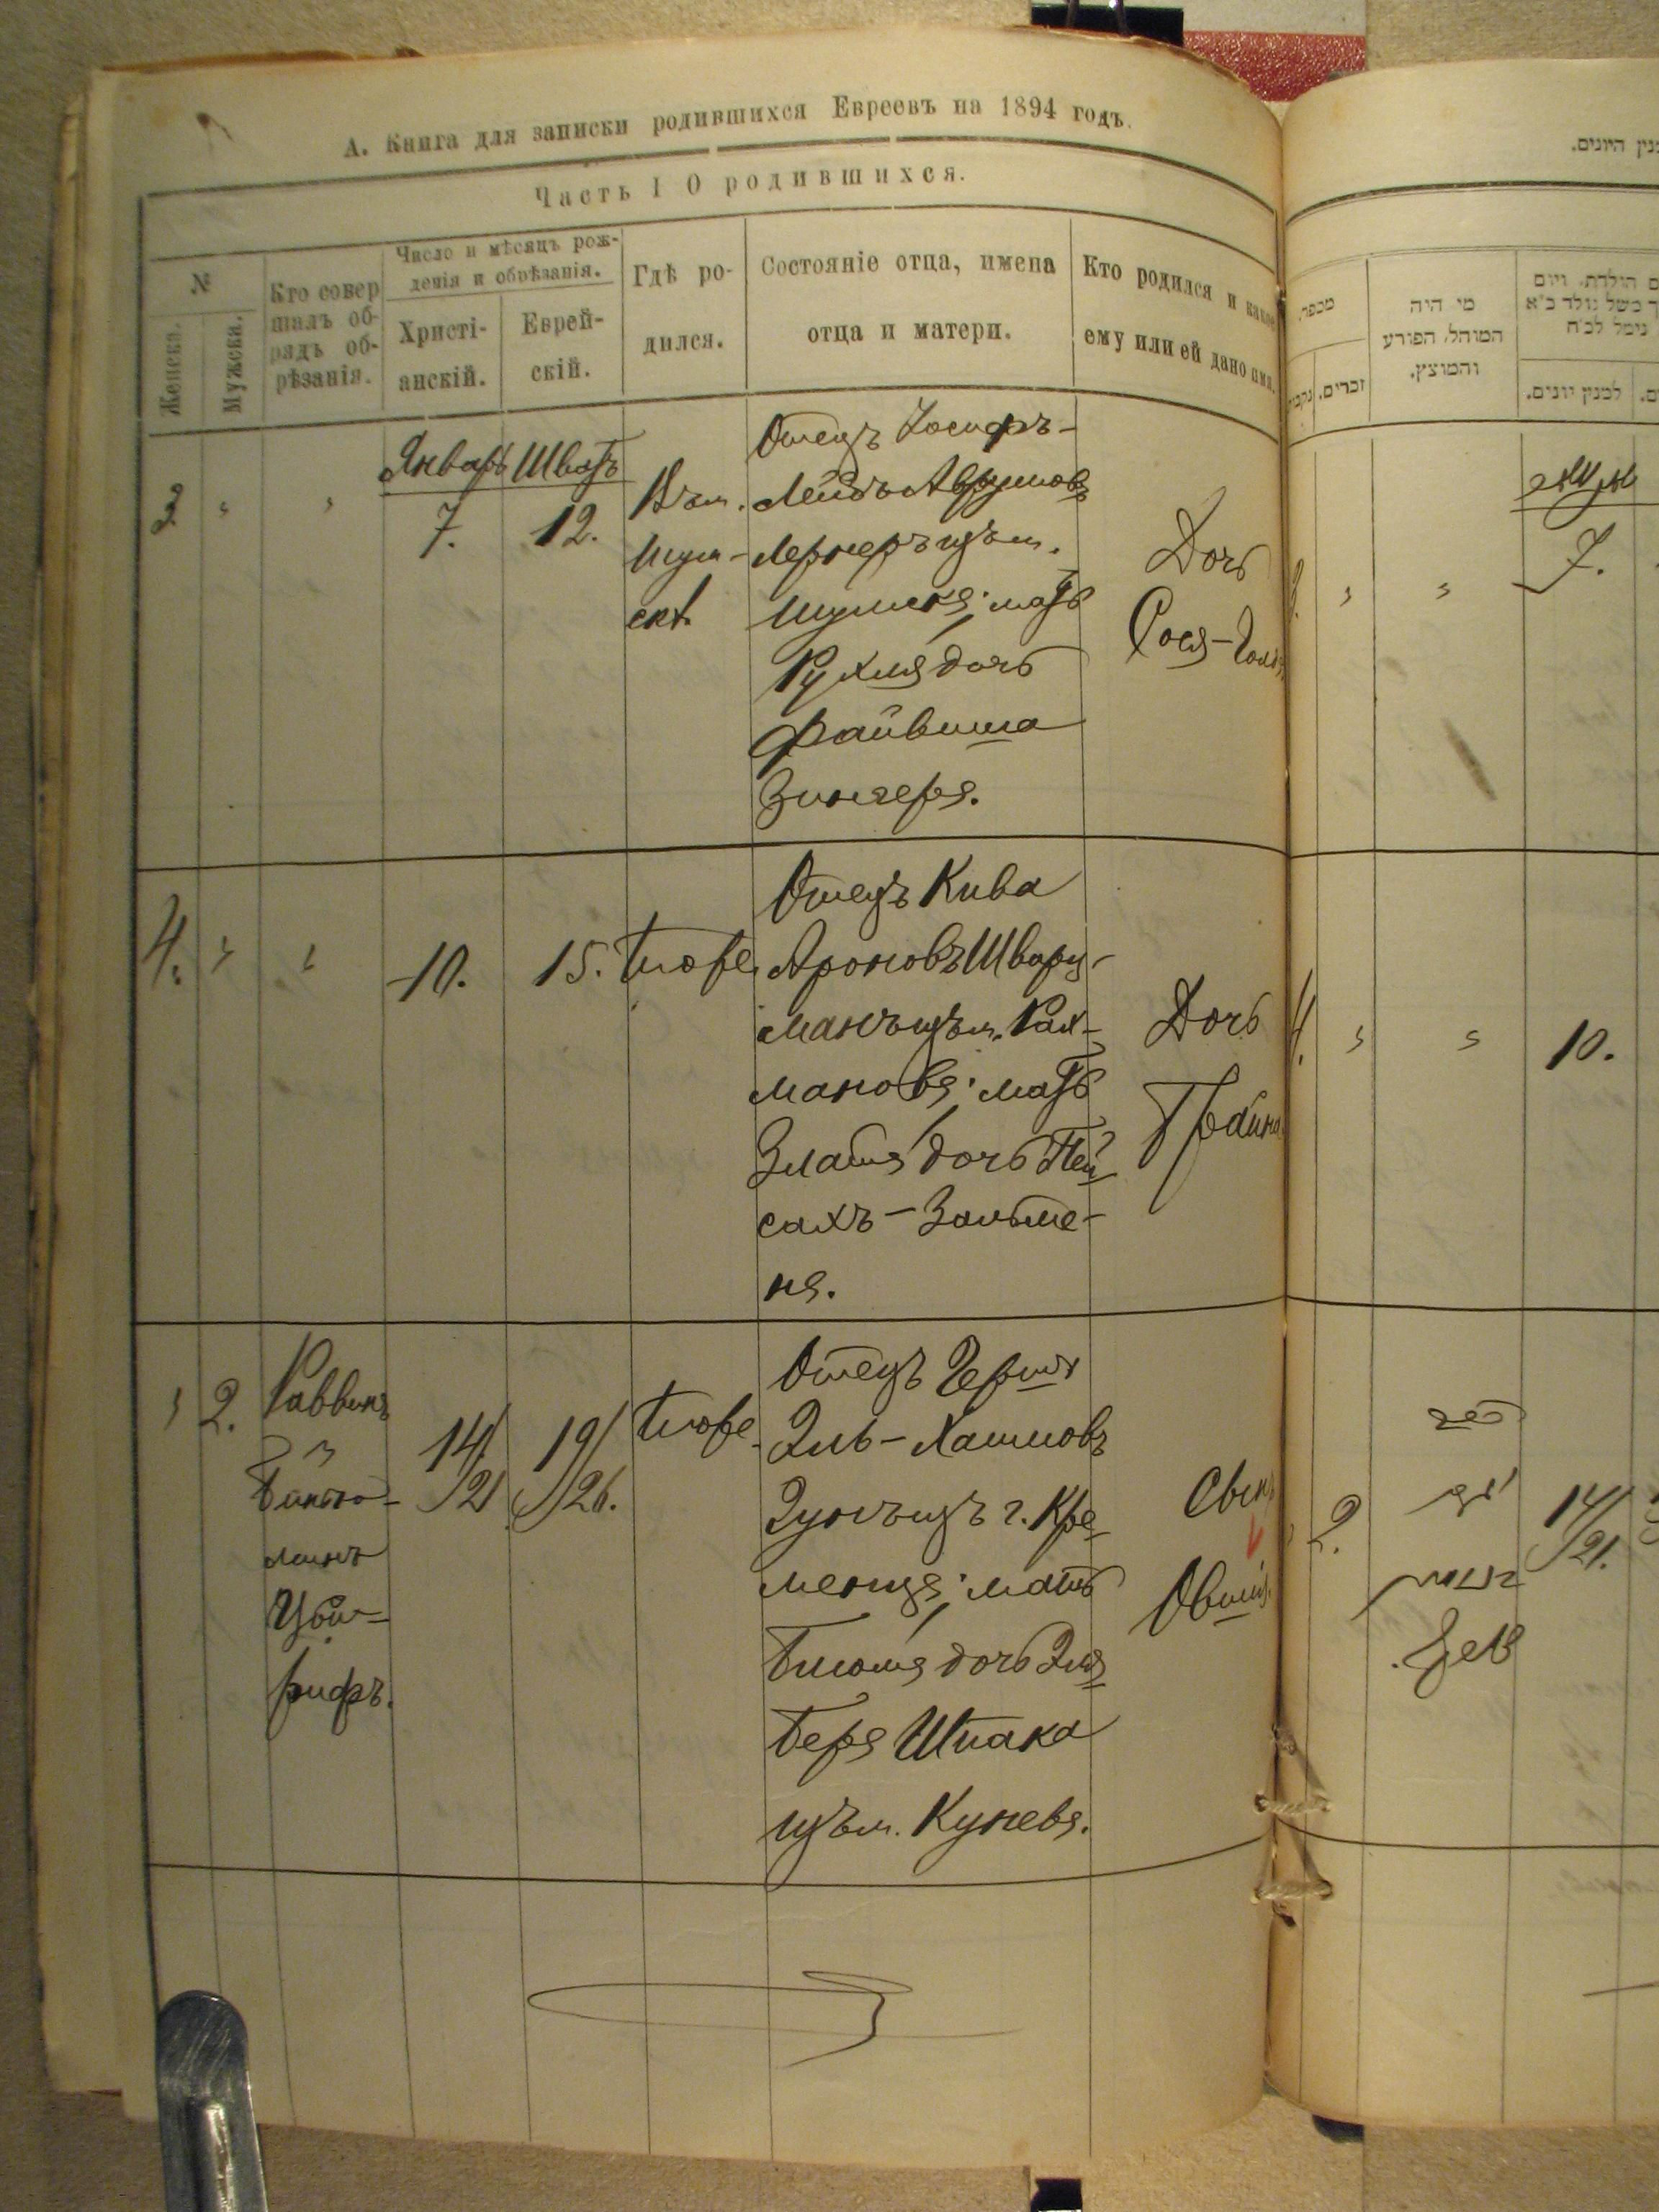 А. Книга для записки родившихся Евреевъ на 1894 годъ.
Часть I О родившихся.
№
Женска.
Мужска.
Кто совер
шалъ об-
рядъ об-
рѣзанія.
Число и мѣсяцъ рож-
денія и обрѣзанія.
Христі-
анскій.
Еврей-
скій.
Гдѣ ро-
дился.
Состояніе отца, имена
отца и матери.
Кто родился и какое
ему или ей дано имя.
Январь Шватъ
3 " " 7. 12.
Въ м.
Шум-
скѣ.
Отецъ Іосифъ-
Лейбъ Аврумовъ
Лернеръ изъ м.
Шумска; мать
Рухля дочь
Файвиша
Зингера.
Дочь
Рося-
4. " " 10. 15. тоже
Отецъ Кива
Ароновъ Шварц-
манъ изъ м. Рах-
манова; мать
Злата дочь Пей
сахъ-Зальме-
на.
Дочь
Трайна
" 2.
Раввинъ
Цви-
рифъ.
14/21 19/26.
тоже
Отецъ Гершъ
Эль-Хаимовъ
Зунъ изъ г. Кре
менца; мать
дочь Эля
Бера Шпака
изъ м. Кунева.
Сынъ
Овшій.
מספר.
זכרים.
מי היה
המוהל, הפורע
והמוצץ.
למנין יונים.
7.
4. " " 10.
2.
14/21.